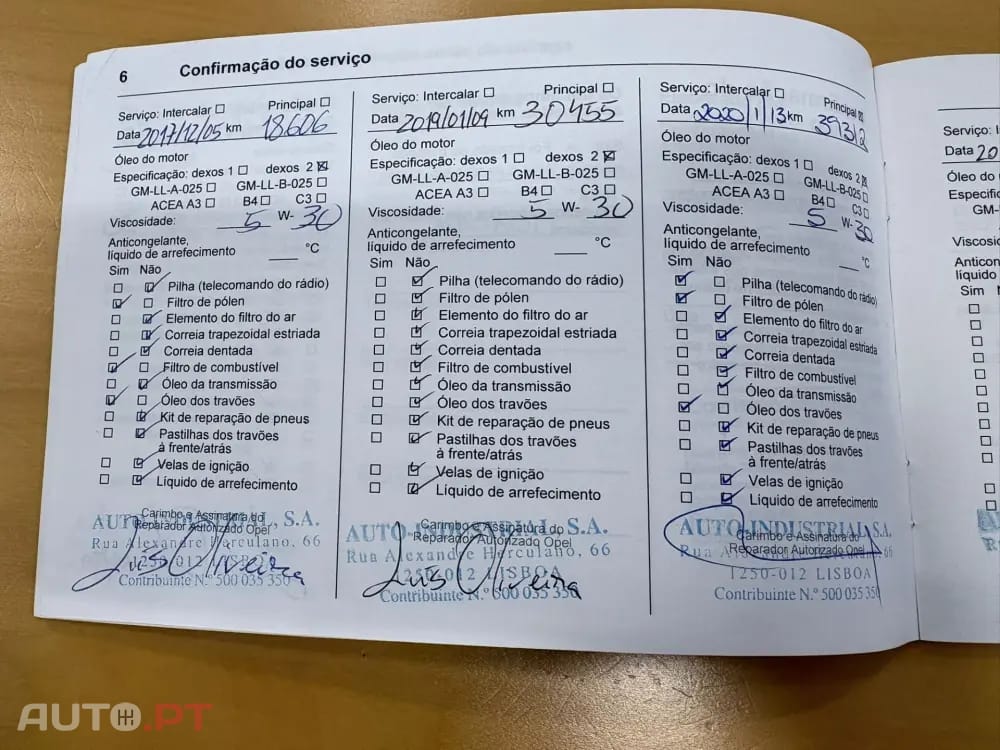 6 Confirmação do serviço
Serviço: Intercalar Principal
Data 2017/12/05 km 18.606
Óleo do motor
Especificação: dexos 1 dexos 2
GM-LL-A-025 GM-LL-B-025
ACEA A3 B4 C3
Viscosidade: 5 W- 30
Anticongelante,
líquido de arrefecimento °C
Sim Não
Pilha (telecomando do rádio)
Filtro de pólen
Elemento do filtro do ar
Correia trapezoidal estriada
Correia dentada
Filtro de combustível
Óleo da transmissão
Óleo dos travões
Kit de reparação de pneus
Pastilhas dos travões
à frente/atrás
Velas de ignição
Líquido de arrefecimento
Carimbo e Assinatura do
AUTO-INDUSTRIAL, S.A.
Reparador Autorizado Opel
Rua Alexandre Herculano, 66
Luís Oliveira
Contribuinte N.º 500 035 350
Serviço: Intercalar Principal
Data 2019/01/09 km 30455
Óleo do motor
Especificação: dexos 1 dexos 2
GM-LL-A-025 GM-LL-B-025
ACEA A3 B4 C3
Viscosidade: 5 W- 30
Anticongelante,
líquido de arrefecimento °C
Sim Não
Pilha (telecomando do rádio)
Filtro de pólen
Elemento do filtro do ar
Correia trapezoidal estriada
Correia dentada
Filtro de combustível
Óleo da transmissão
Óleo dos travões
Kit de reparação de pneus
Pastilhas dos travões
à frente/atrás
Velas de ignição
Líquido de arrefecimento
Carimbo e Assinatura do
AUTO-INDUSTRIAL, S.A.
Reparador Autorizado Opel
Rua Alexandre Herculano, 66
1250-012 LISBOA
Luís Oliveira
Contribuinte N.º 500 035 350
Serviço: Intercalar Principal
Data 2020/1/13 km 39312
Óleo do motor
Especificação: dexos 1 dexos 2
GM-LL-A-025 GM-LL-B-025
ACEA A3 B4 C3
Viscosidade: 5 W- 30
Anticongelante,
líquido de arrefecimento °C
Sim Não
Pilha (telecomando do rádio)
Filtro de pólen
Elemento do filtro do ar
Correia trapezoidal estriada
Correia dentada
Filtro de combustível
Óleo da transmissão
Óleo dos travões
Kit de reparação de pneus
Pastilhas dos travões
à frente/atrás
Velas de ignição
Líquido de arrefecimento
AUTO-INDUSTRIAL, S.A.
Carimbo e Assinatura do
Reparador Autorizado Opel
1250-012 LISBOA
Contribuinte N.º 500 035 350
Serviço: In
Data 20
Óleo do
Especific
GM
Viscosi
Anticon
líquido
Sim N
AUTO.PT